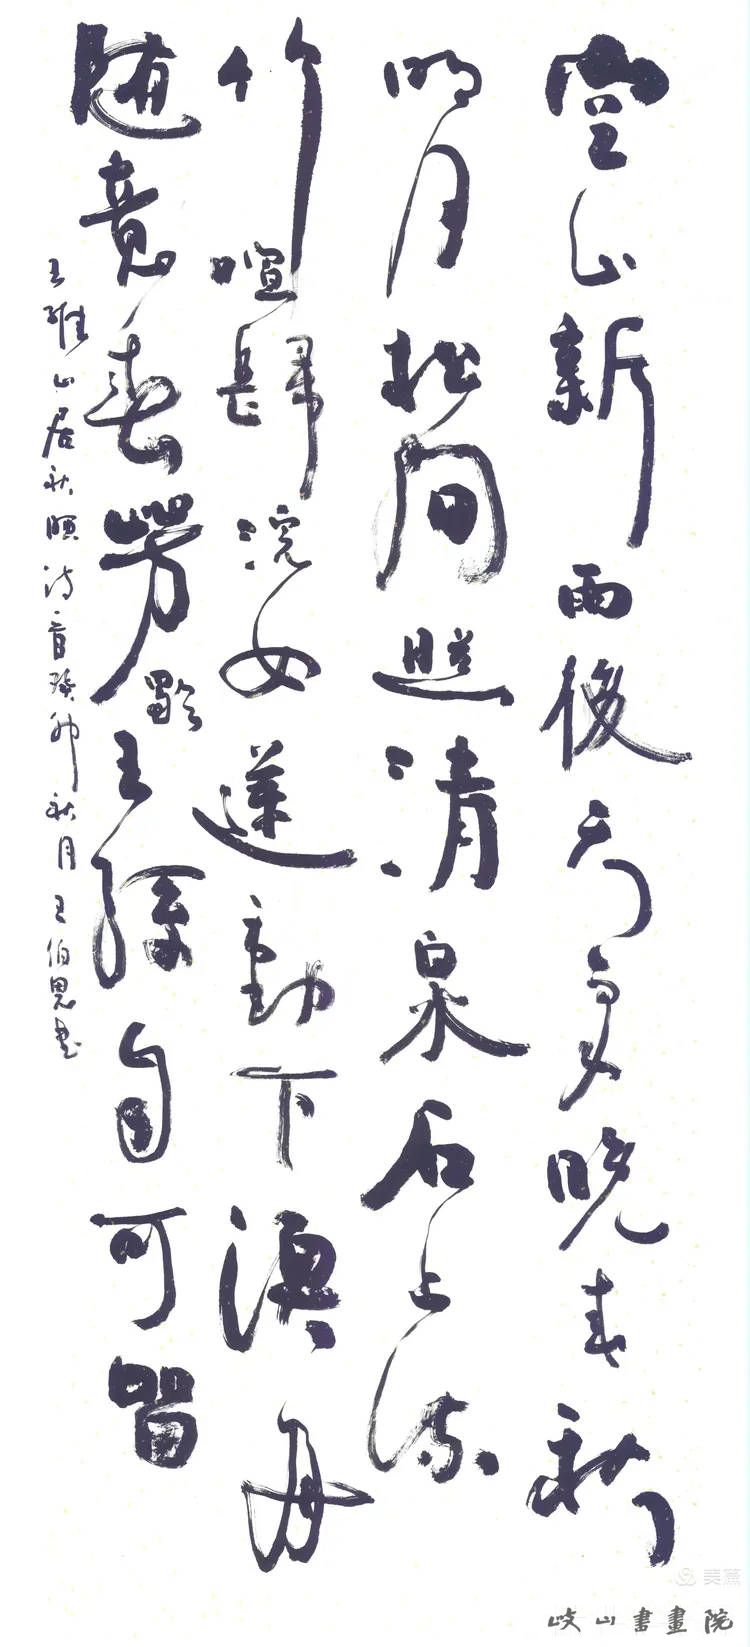 空山新雨後天气晚来秋
明月松间照清泉石上流
竹喧歸浣女蓮動下漁舟
随意春芳歇王孫自可留
王維山居秋暝诗一首癸卯秋月王伯恩書
岐山書畫院
美篇